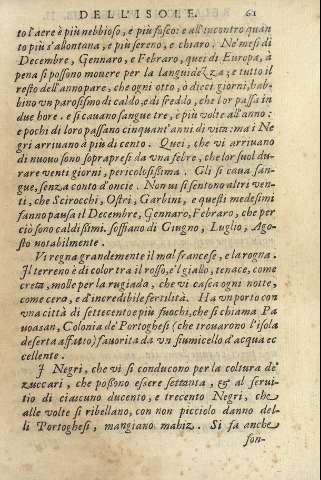 DELL'ISOLE. 61
to l'aere è più nebbioso, e più fosco: e all'incontro quan
to più s'allontana, e più sereno, e chiaro. Ne' mesi di
Decembre, Gennaro, e Febraro, quei di Europa, à
pena si possono mouere per la languidezza; e tutto il
resto dell'anno pare, che ogni otto, o dieci giorni, hab-
bino vn parosismo di caldo, e di freddo, che lor passa in
due hore. e si cauano sangue tre, e più volte all'anno:
e pochi di loro passano cinquant'anni di vita: ma i Ne
gri arriuano a più di cento. Quei, che vi arriuano
di nuouo sono soprapresi da vna febre, che lor suol du
rare venti giorni, pericolosissima. Gli si caua san-
gue, senza conto d'oncie. Non vi si sentono altri ven
ti, che Scirocchi, Ostri, Garbini, e questi medesimi
fanno pausa il Decembre, Gennaro, Febraro, che per
ciò sono caldissimi. soffiano di Giugno, Luglio, Ago-
sto notabilmente.
Vi regna grandemente il mal francese, e la rogna.
Il terreno è di color tra il rosso, e'l giallo, tenace, come
creta, molle per la rugiada, che vi casca ogni notte,
come cera, e d'incredibile fertilità. Ha vn porto con
vna città di settecento e più fuochi, che si chiama Pa
uoasan, Colonia de' Portoghesi (che trouarono l'isola
deserta affatto) fauorita da vn fiumicello d'acqua ec
cellente.
I Negri, che vi si conducono per la coltura de'
zuccari, che possono essere settanta, & al serui-
tio di ciascuno ducento, e trecento Negri, che
alle volte si ribellano, con non picciolo danno del-
li Portoghesi, mangiano mahiz. Si fa anche
son-